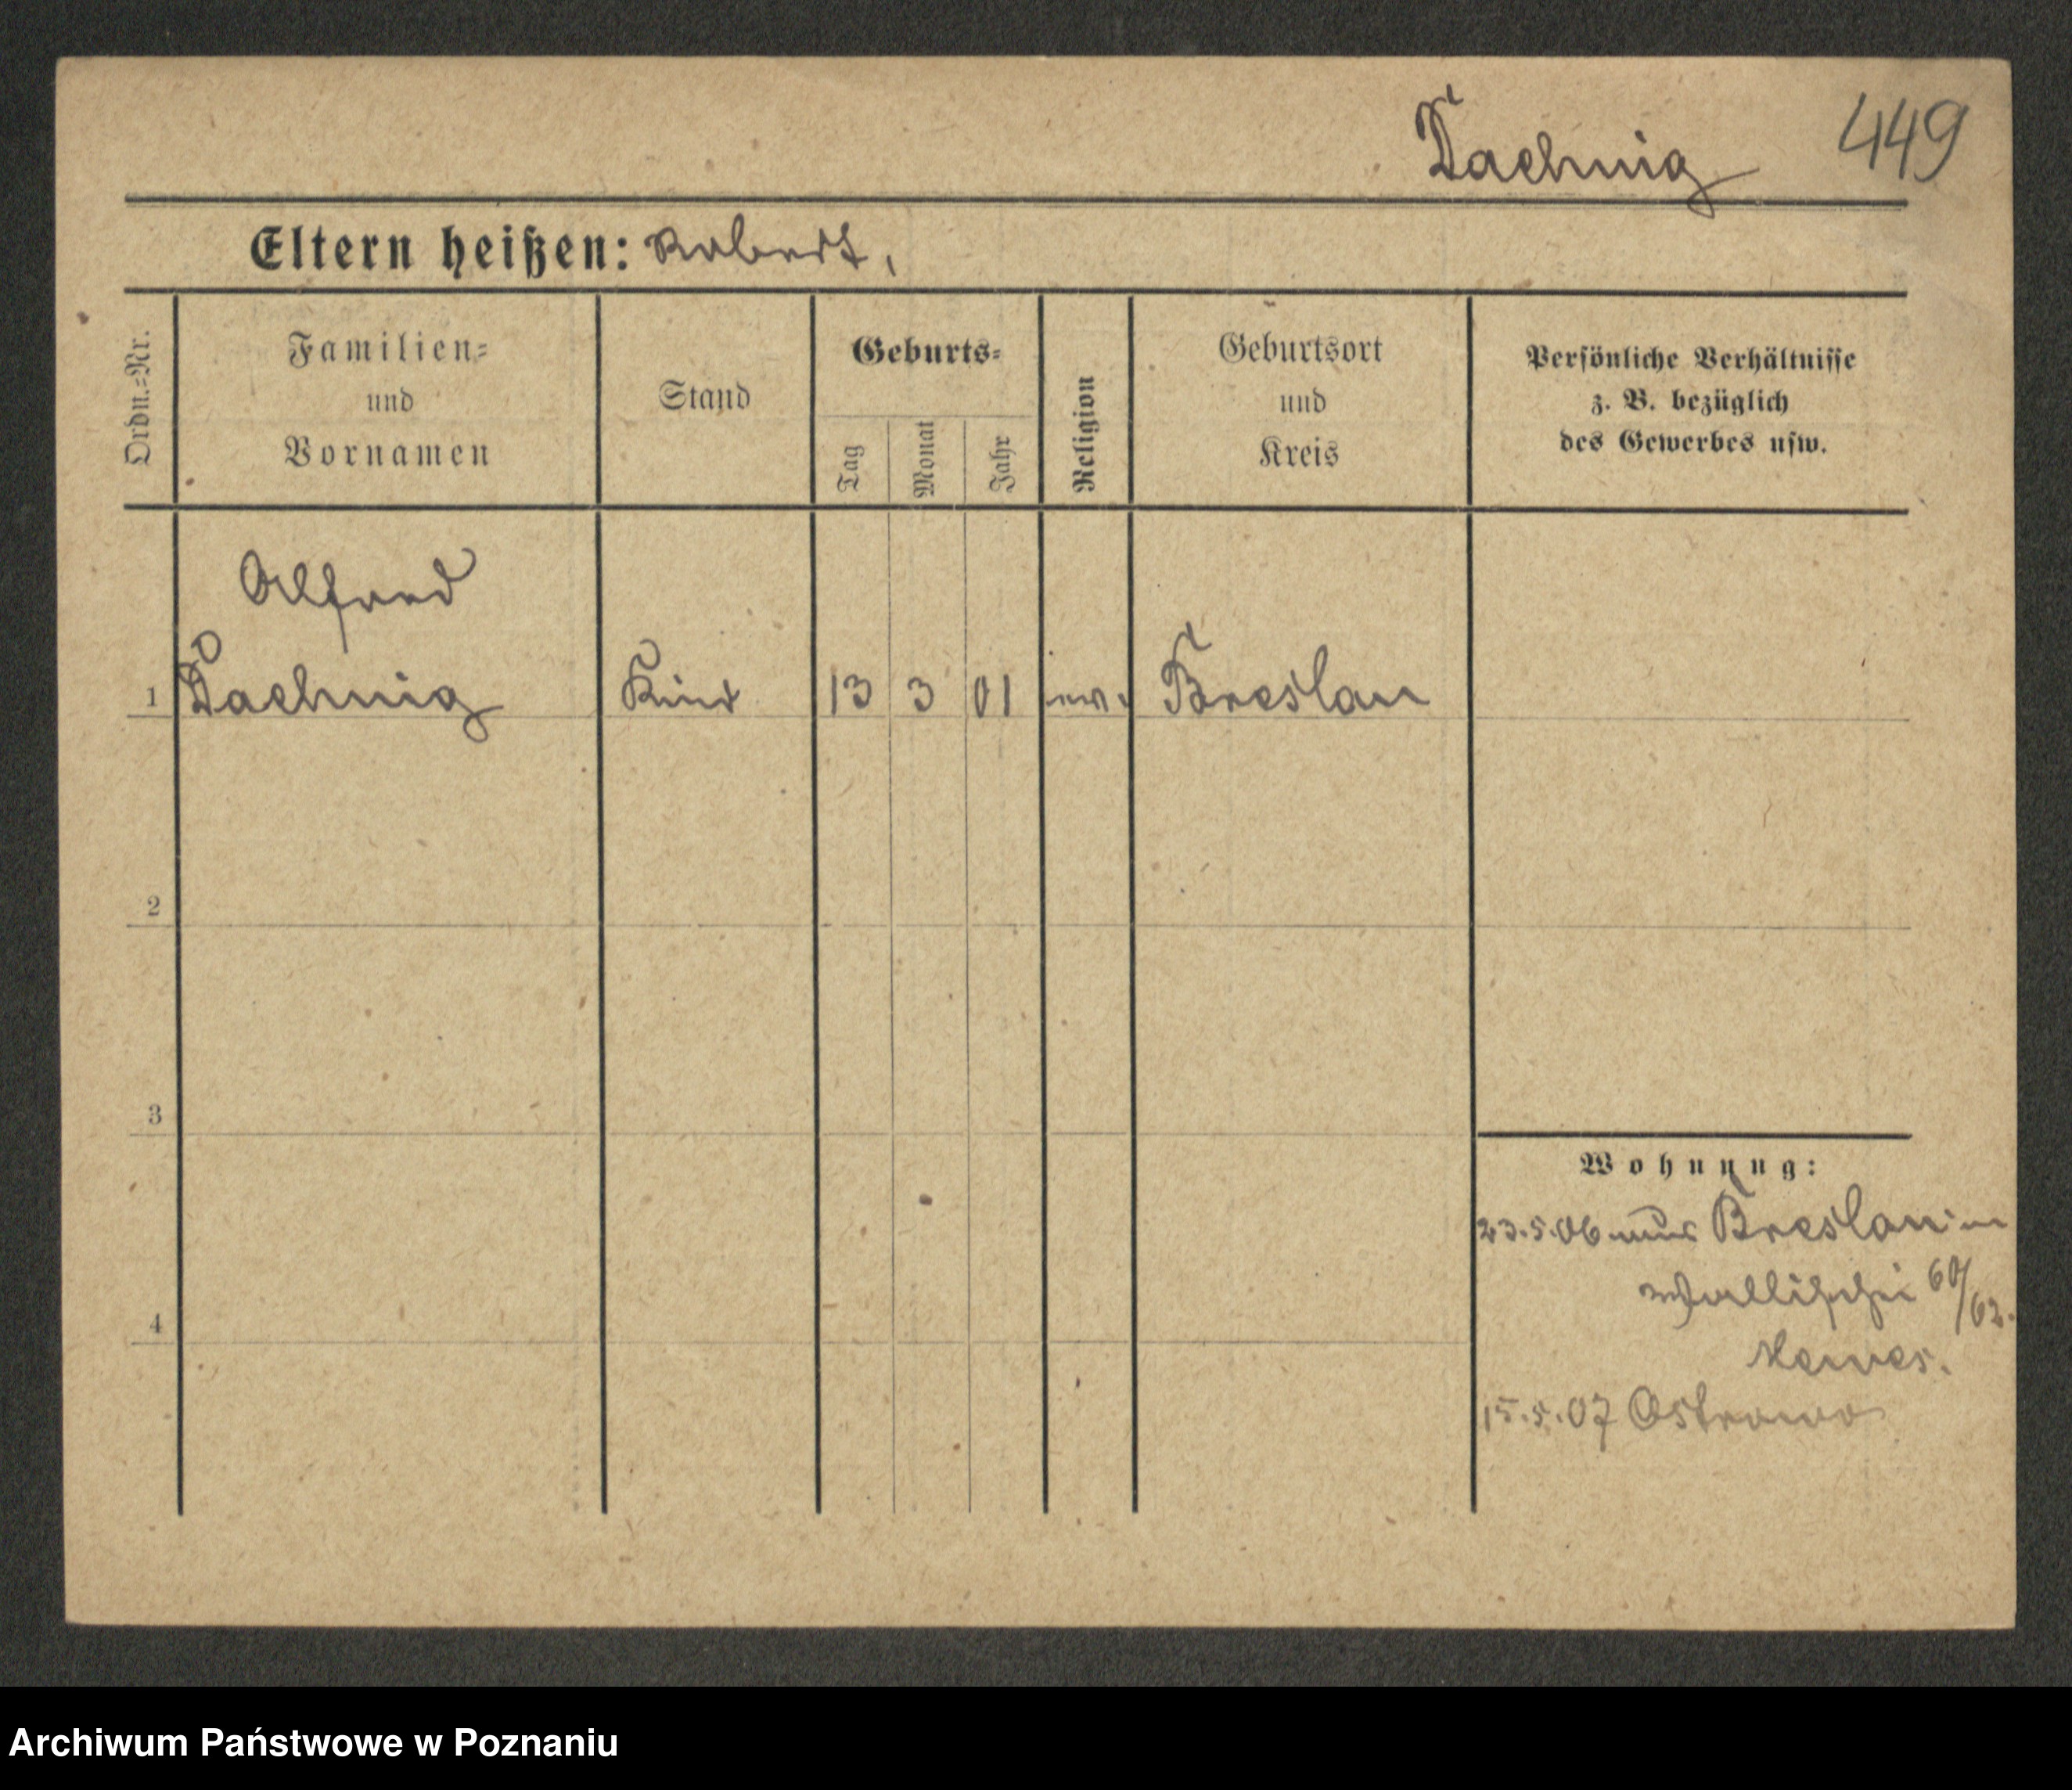 Daehmig 449
Eltern heißen: Robert,
Ordn.=Nr.
Familien=
und
Vornamen
Stand
Geburts=
Tag
Monat
Jahr
Religion
Geburtsort
und
Kreis
Persönliche Verhältnisse
z. B. bezüglich
des Gewerbes usw.
Alfred
1 Daehmig Kind 13 3 01 ev. Breslau
2
3
4
Wohnung:
23.5.06 aus Breslau in
Wallischei 60/62.
15.5.07 Ostrowo
Archiwum Państwowe w Poznaniu